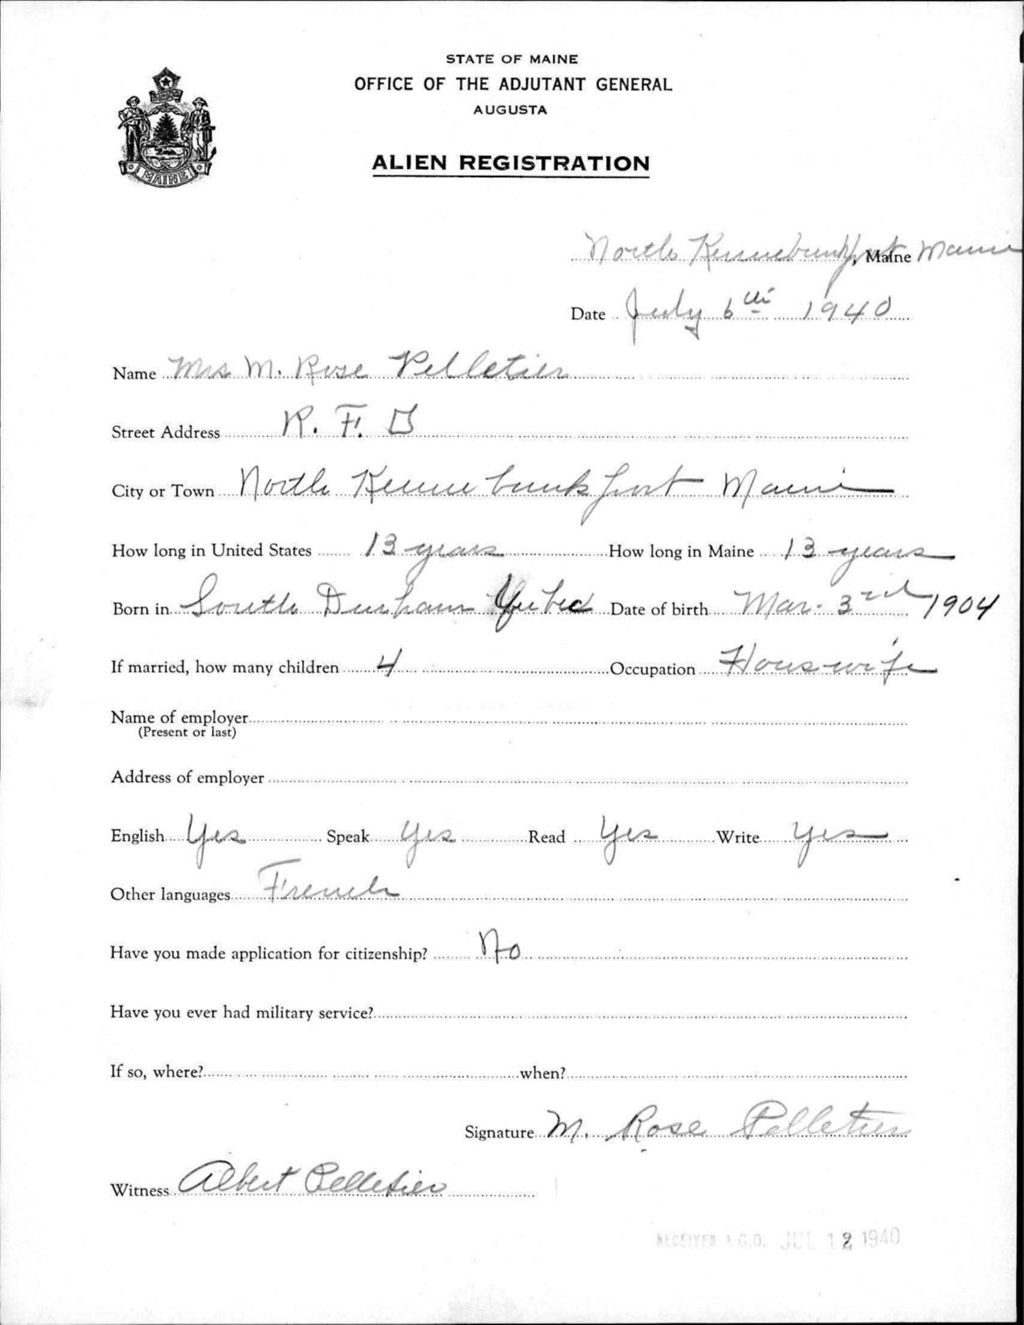 STATE OF MAINE
OFFICE OF THE ADJUTANT GENERAL
AUGUSTA
ALIEN REGISTRATION
MAINE
North Kennebunkport, Maine Maine
Date July 6th 1940
Name Mrs M. Rose Pelletier
Street Address R. F. D
City or Town North Kennebunkport Maine
How long in United States 13 years How long in Maine 13 years
Born in South Durham Quebec Date of birth Mar. 3rd 1904
If married, how many children 4 Occupation Houswife
Name of employer
(Present or last)
Address of employer
English Yes Speak Yes Read Yes Write Yes
Other languages French
Have you made application for citizenship? No
Have you ever had military service?
If so, where? when?
Signature M. Rose Pelletier
Witness Albert Pelletier
RECEIVED A.G.O. JUL 12 1940